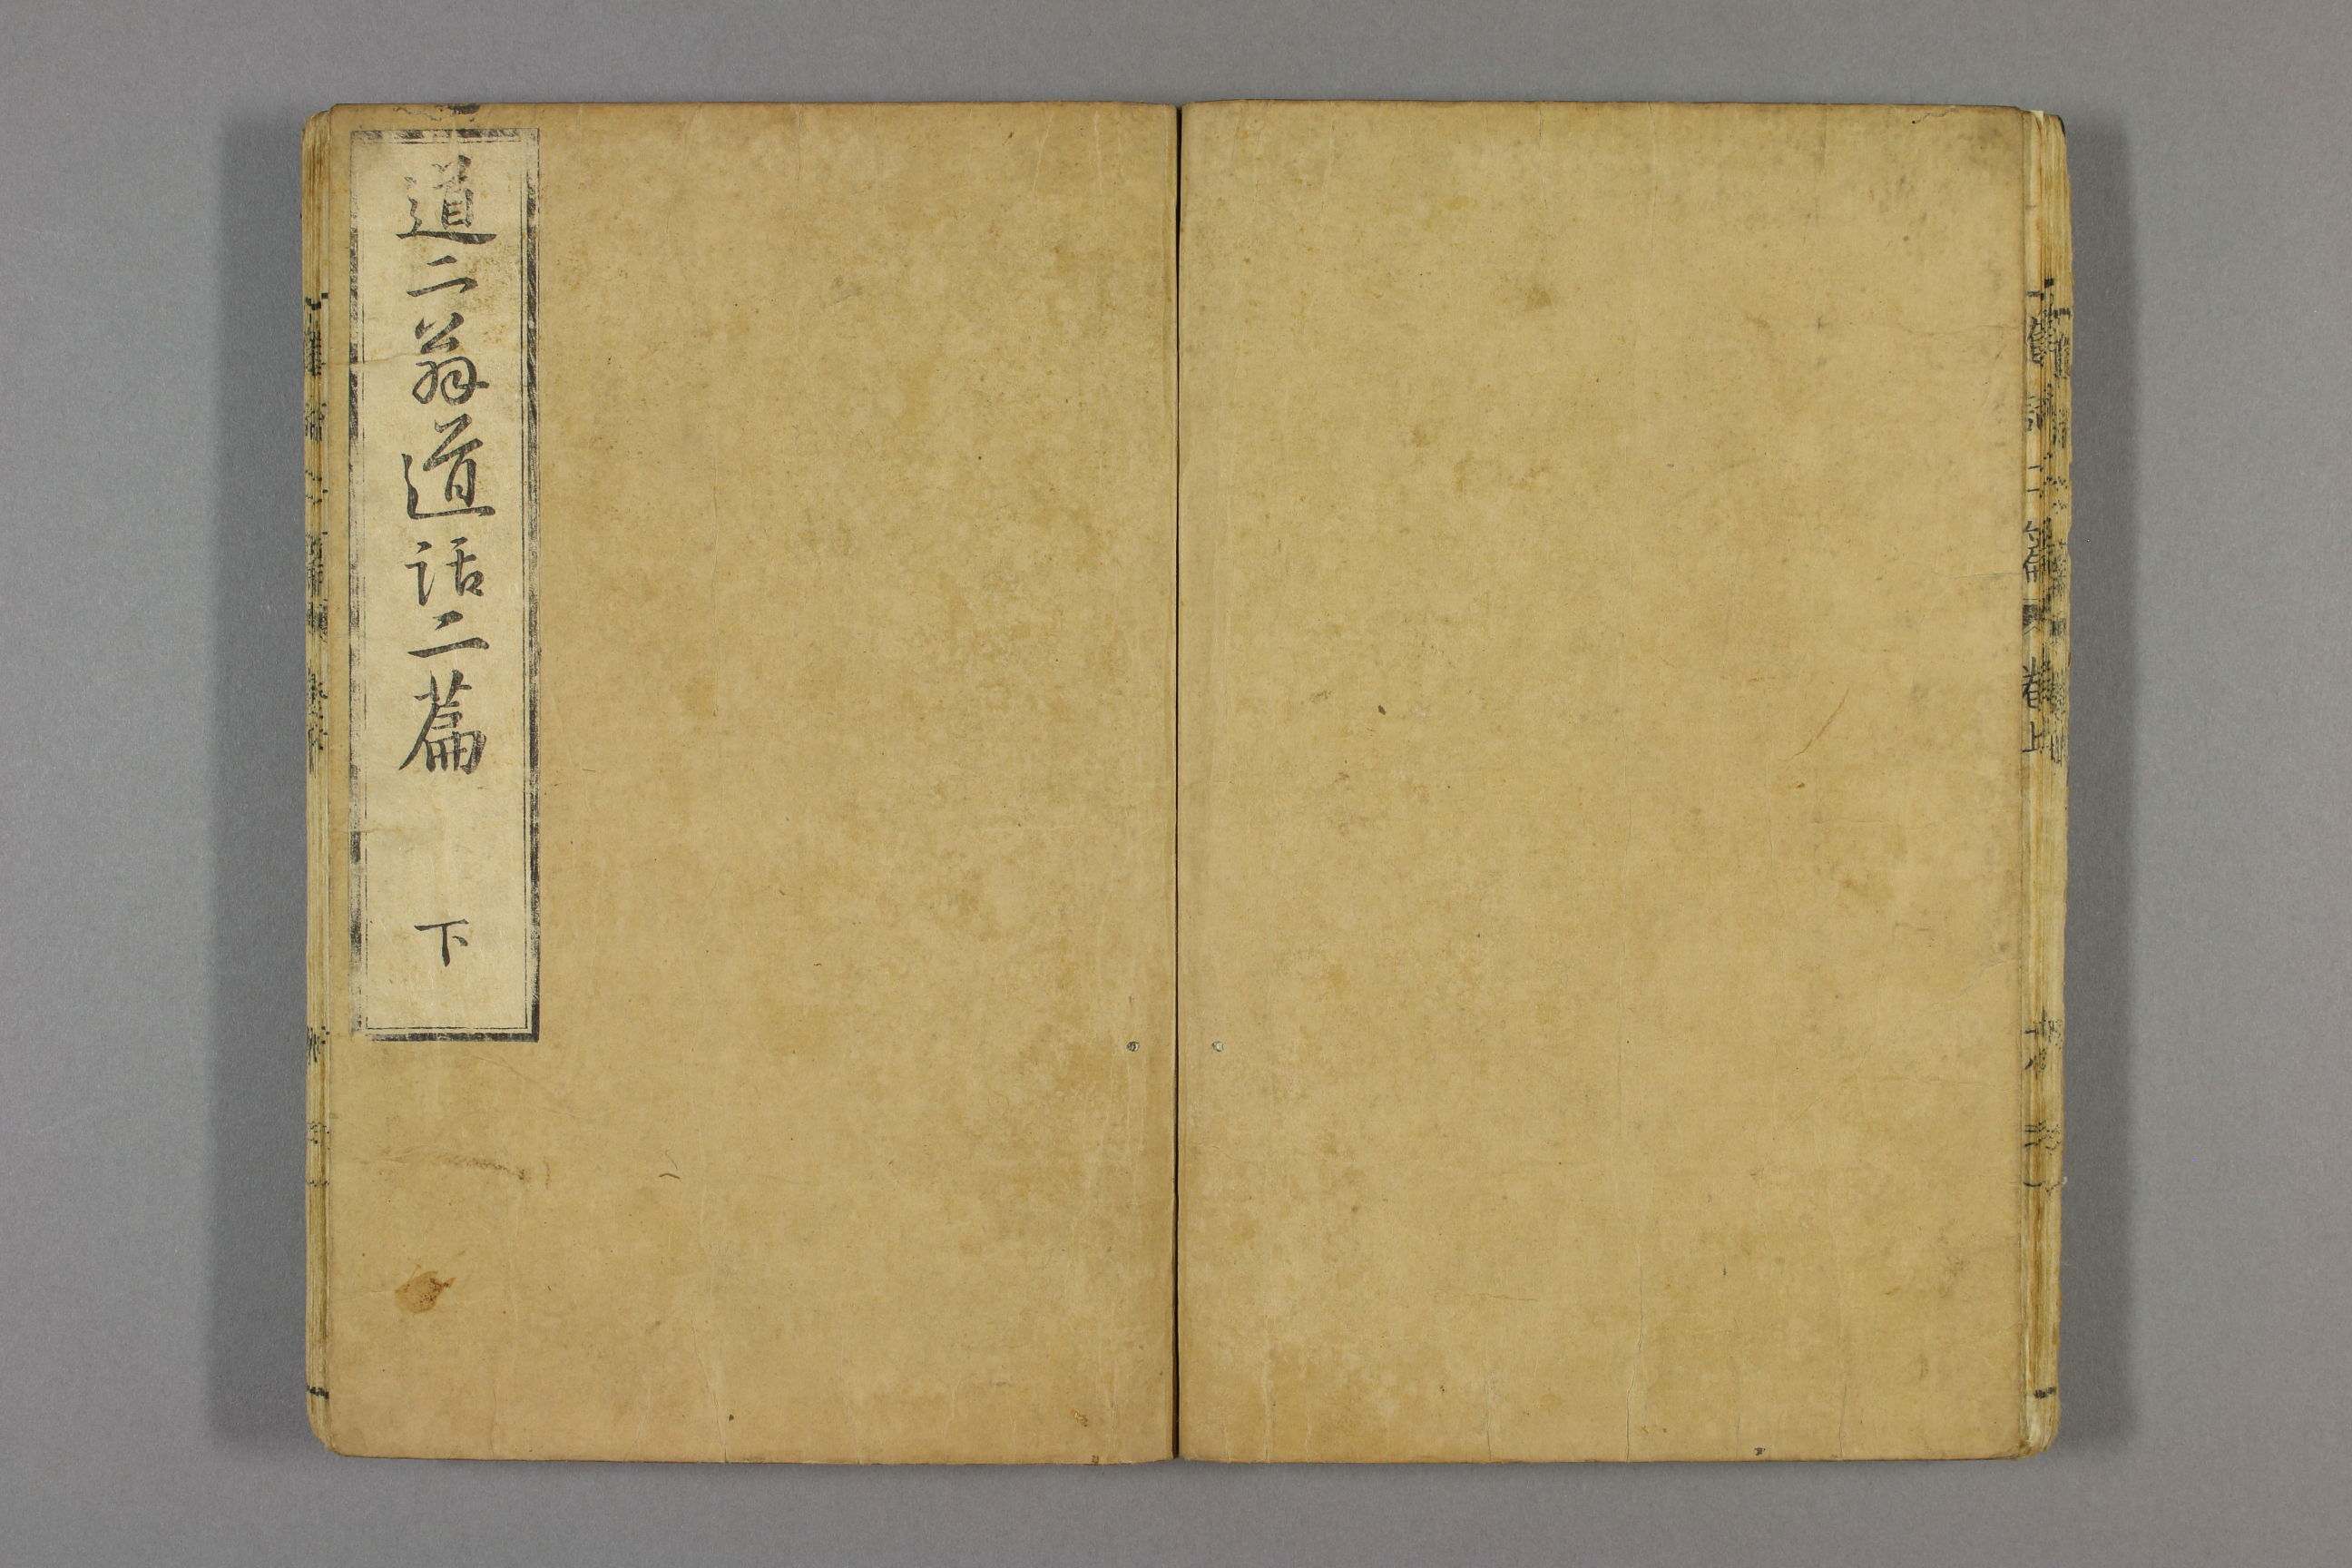 道二翁道話二篇 下